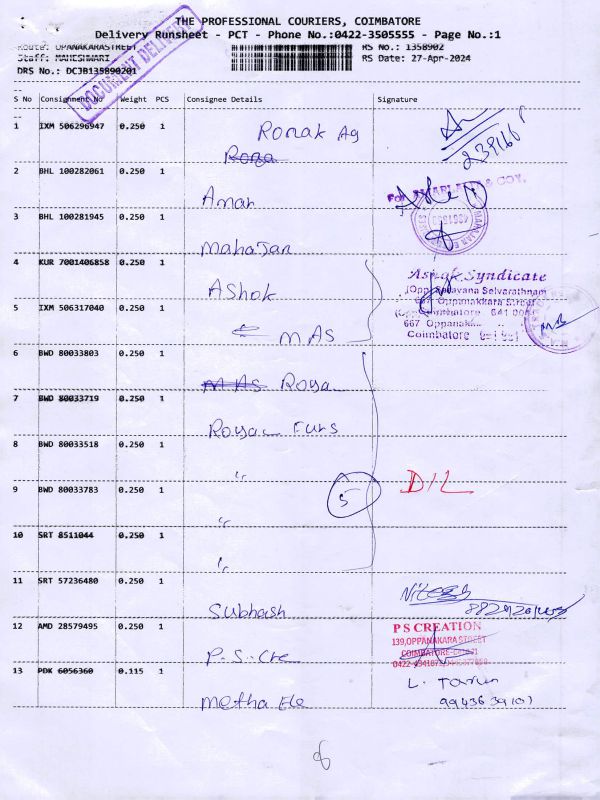 THE PROFESSIONAL COURIERS, COIMBATORE
Delivery Runsheet - PCT - Phone No.:0422-3505555 - Page No.:1
Route: OPANAKARASTREET RS No.: 1358902
Staff: MAHESHWARI RS Date: 27-Apr-2024
DRS No.: DCJB135890201
DOCUMENT DELIVERY
S No Consignment No Weight PCS Consignee Details Signature
1 IXM 506296947 0.250 1 Ronak Ag
Rona
2 BHL 100282061 0.250 1 Aman
3 BHL 100281945 0.250 1 Mahajan
4 KUR 7001406858 0.250 1 Ashok
Ashok Syndicate
667 Oppanakkara Street
5 IXM 506317040 0.250 1 MAS
667 Oppanak
Coimbatore
6 BWD 80033803 0.250 1 MAS Royal
7 BWD 80033719 0.250 1 Royal Furs
8 BWD 80033518 0.250 1 "
9 BWD 80033783 0.250 1 " 5 D/L
10 SRT 8511044 0.250 1 "
11 SRT 57236480 0.250 1 Subhash Nitesh
12 AMD 28579495 0.250 1 P.S. Cre
P S CREATION
139,OPPANAKARA STREET
COIMBATORE-641001
13 PDK 6056360 0.115 1 Metha Ele
L. Tarun